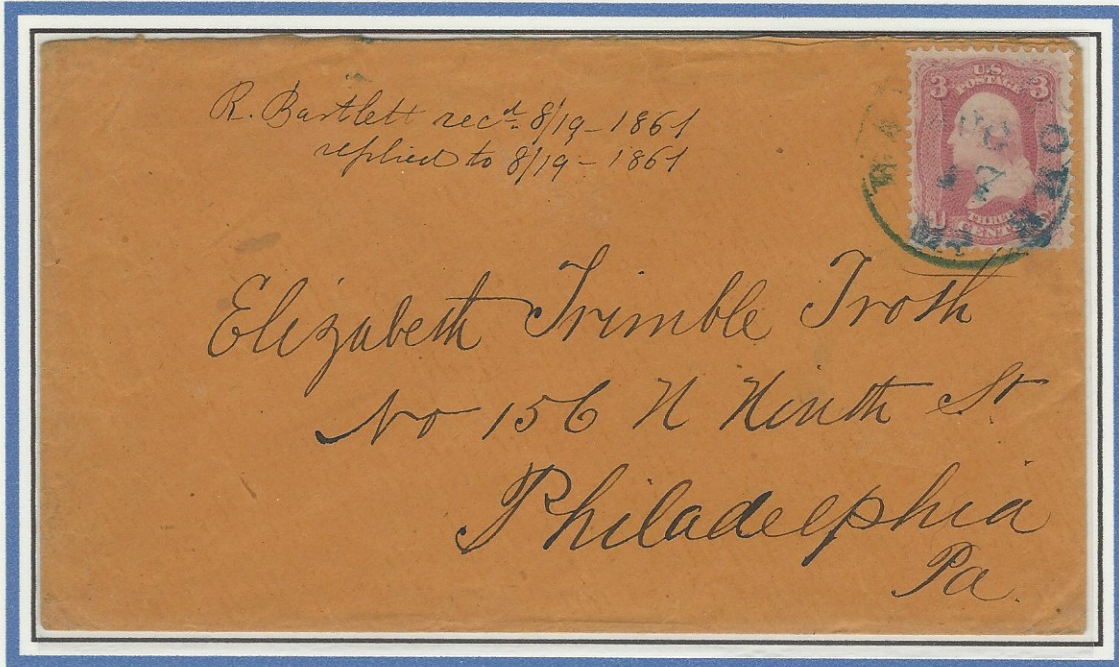 R. Bartlett recd. 8/19 - 1861
replied to 8/19 - 1861
3 U.S. 3
POSTAGE
17
U THREE
CENTS
Elizabeth Trimble Troth
No 156 N Ninth St
Philadelphia
Pa.